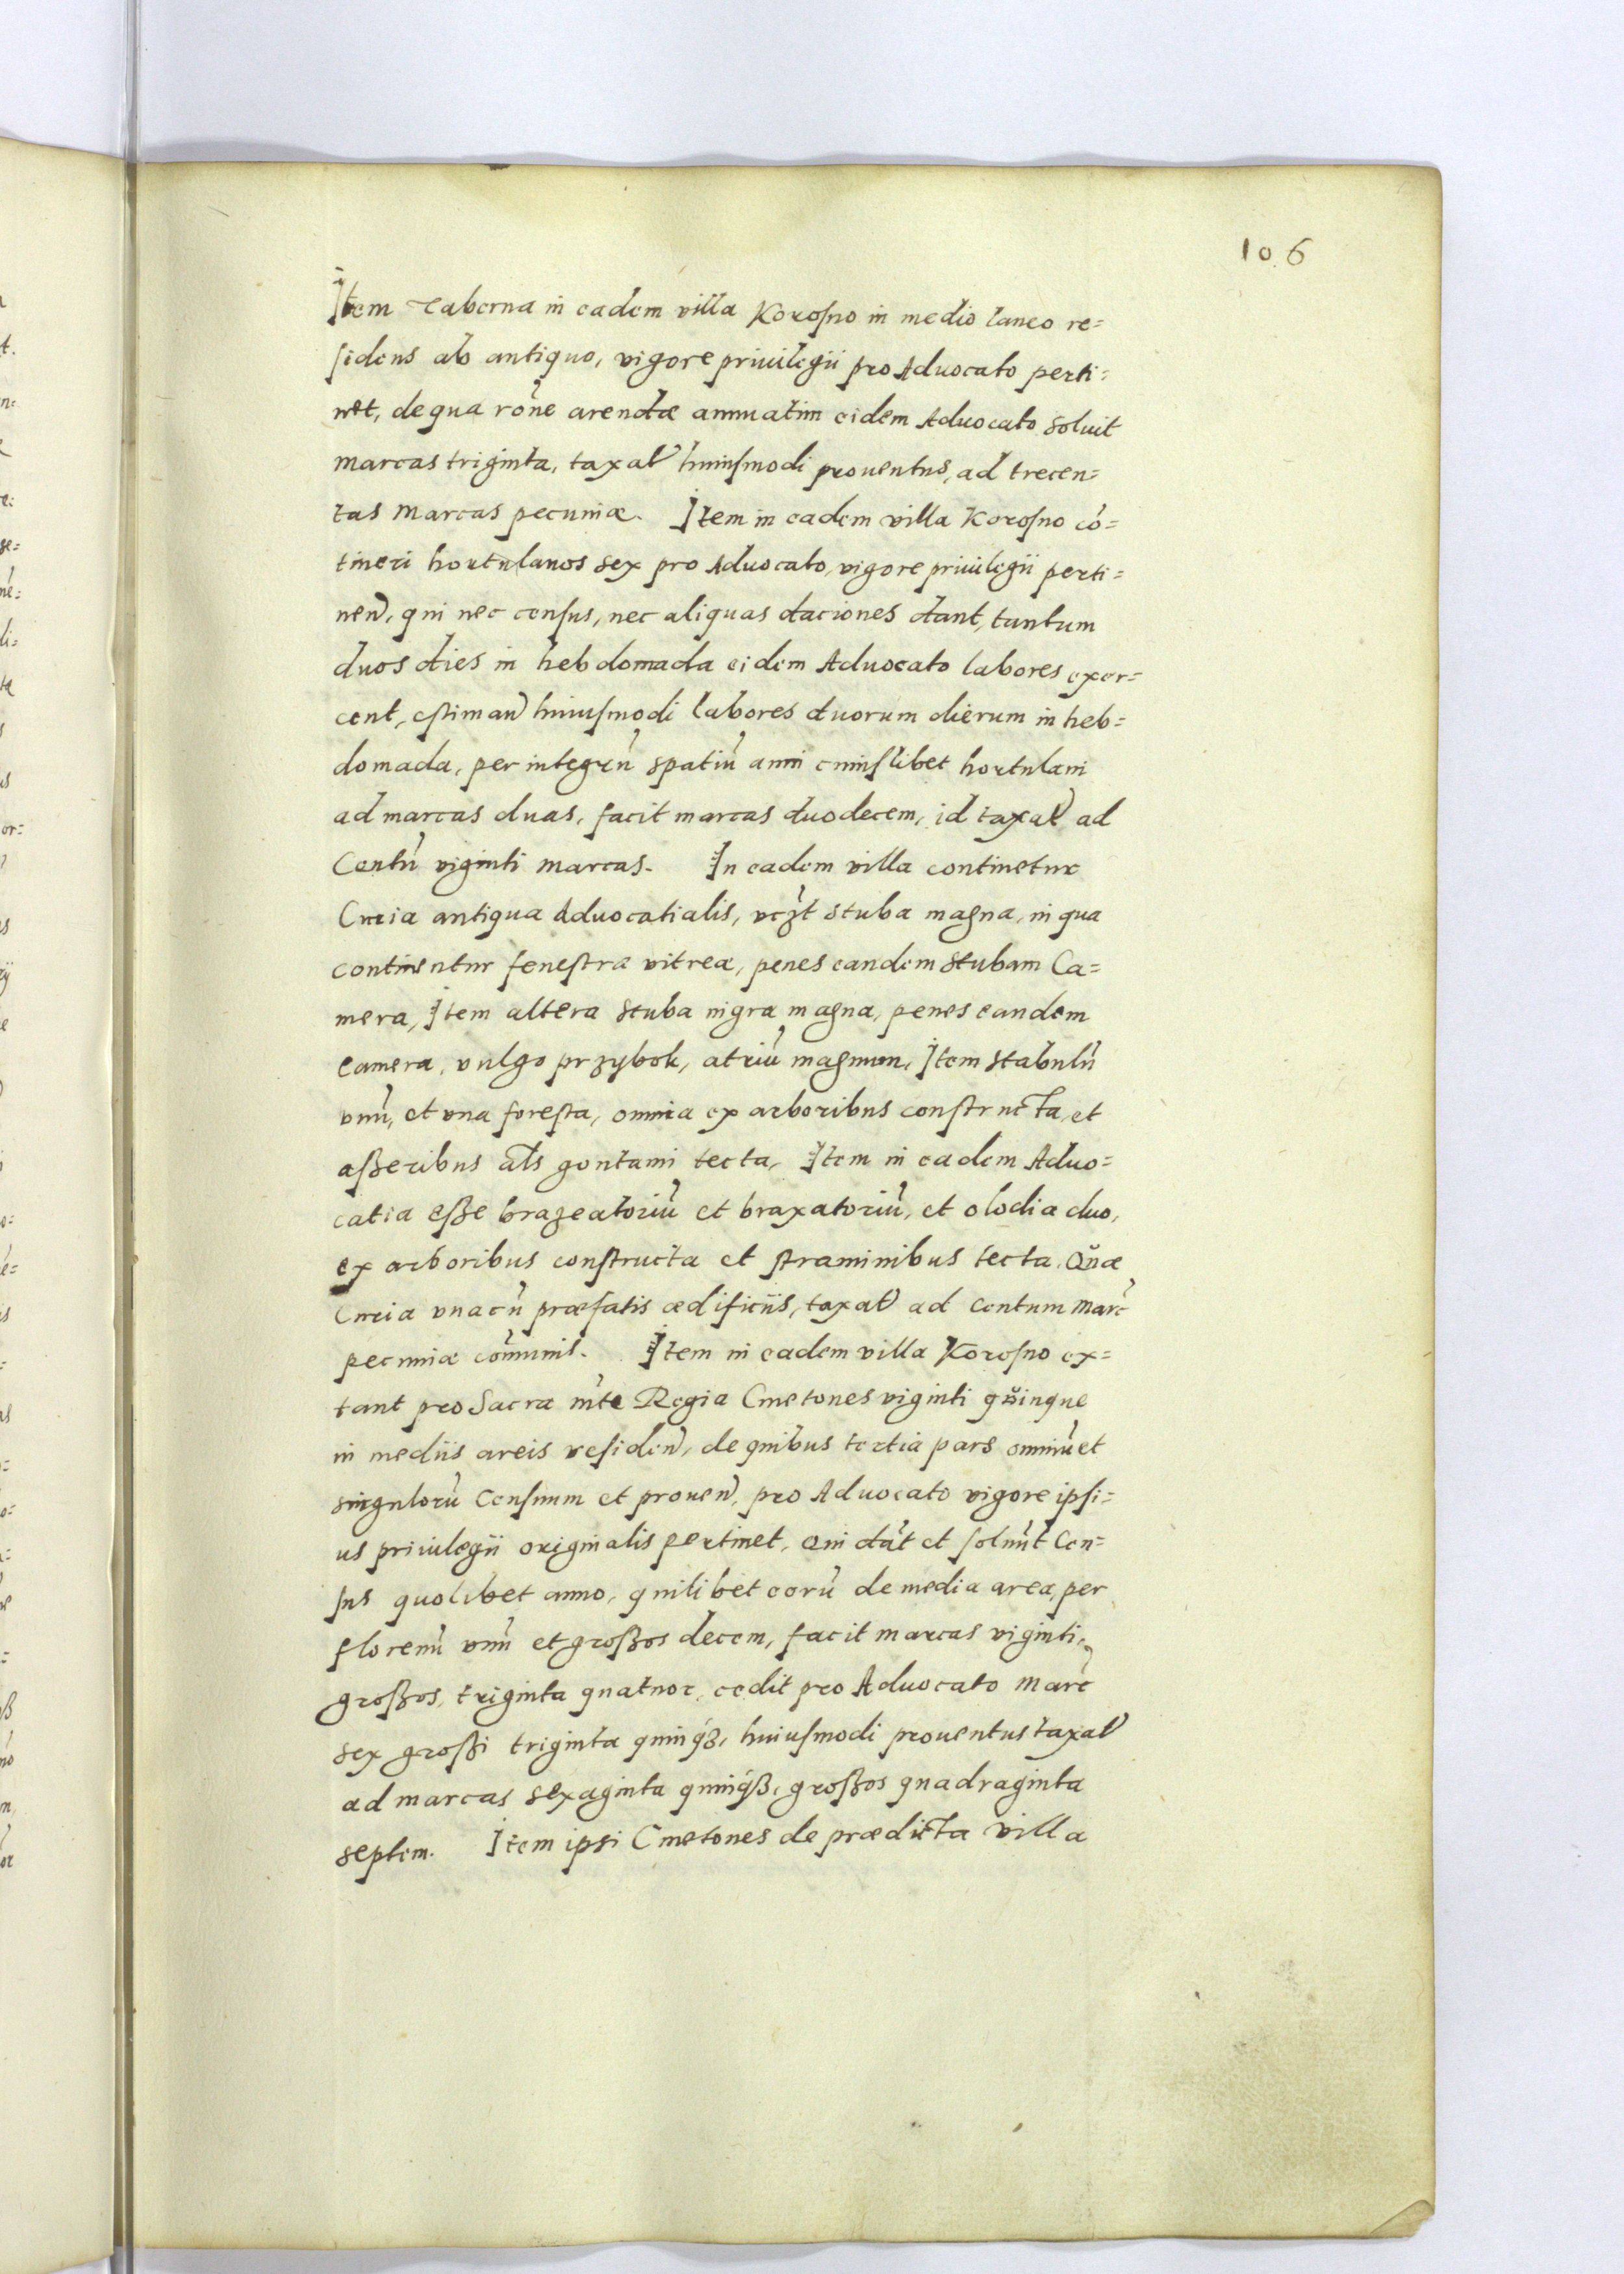 106
Item Taberna in eadem villa Korosno in medio laneo re=
sidens ab antiquo, vigore priuilegii pro Advocato perti=
net, de qua rõne arendæ annuatim eidem Advocato soluit
marcas triginta, taxat huiusmodi prouentus, ad trecen=
tas marcas pecuniæ. Item in eadem villa Korosno cõ=
tineri hortulanos sex pro Advocato, vigore priuilegii perti=
nen, qui nec census, nec aliquas daciones dant, tantum
duos dies in hebdomada eidem Advocato labores exer=
cent, estiman huiusmodi labores duorum dierum in heb=
domada, per integrũ spatiũ anni cuiuslibet hortulani
ad marcas duas, facit marcas duodecem, id taxat ad
Centũ viginti marcas. In eadem villa continetur
Curia antiqua Advocatialis, vczt stuba magna, in qua
continentur fenestræ vitreæ, penes eandem stubam Ca=
mera, Item altera stuba nigra magna, penes eandem
camera, vulgo przybok, atriũ magnum, Item stabulũ
vnũ, et vna foresta, omnia ex arboribus constructa, et
aßeribus als gontami tecta, Item in eadem Advo=
catia eße brazeatoriũ et braxatoriũ, et olodia duo,
ex arboribus constructa et straminibus tecta. Quæ
Curia vnacũ præfatis ædificiis, taxat ad centum marc
pecuniæ cõmunis. Item in eadem villa Korosno ex=
tant pro Sacra mte Regia Cmetones viginti quinque
in mediis areis residen, de quibus tertia pars omniũ et
singulorũ Censuum et prouen, pro Advocato vigore ipsi=
us priuilegii originalis pertinet, Qui dãt et soluũt Cen=
sus quolibet anno, quilibet eorũ de media area, per
florenũ vnũ et großos decem, facit marcas viginti,
großos, triginta quatuor, cedit pro Advocato marc
sex großi triginta quinqȝ, huiusmodi prouentus taxat
ad marcas sexaginta quinqȝ, großos quadraginta
septem. Item ipsi Cmetones de prædicta villa